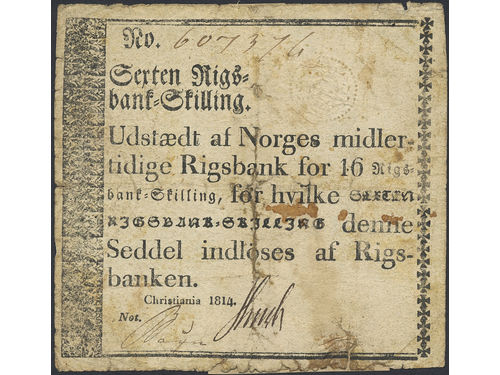 No. 607376
Sexten Rigs-
bank-Skilling.
Udstædt af Norges midler-
tidige Rigsbank for 16 Rigs-
bank-Skilling, for hvilke SEXTEN
RIGSBANK-SKILLING denne
Seddel indlöses af Rigs-
banken.
Christiania 1814.
Not.